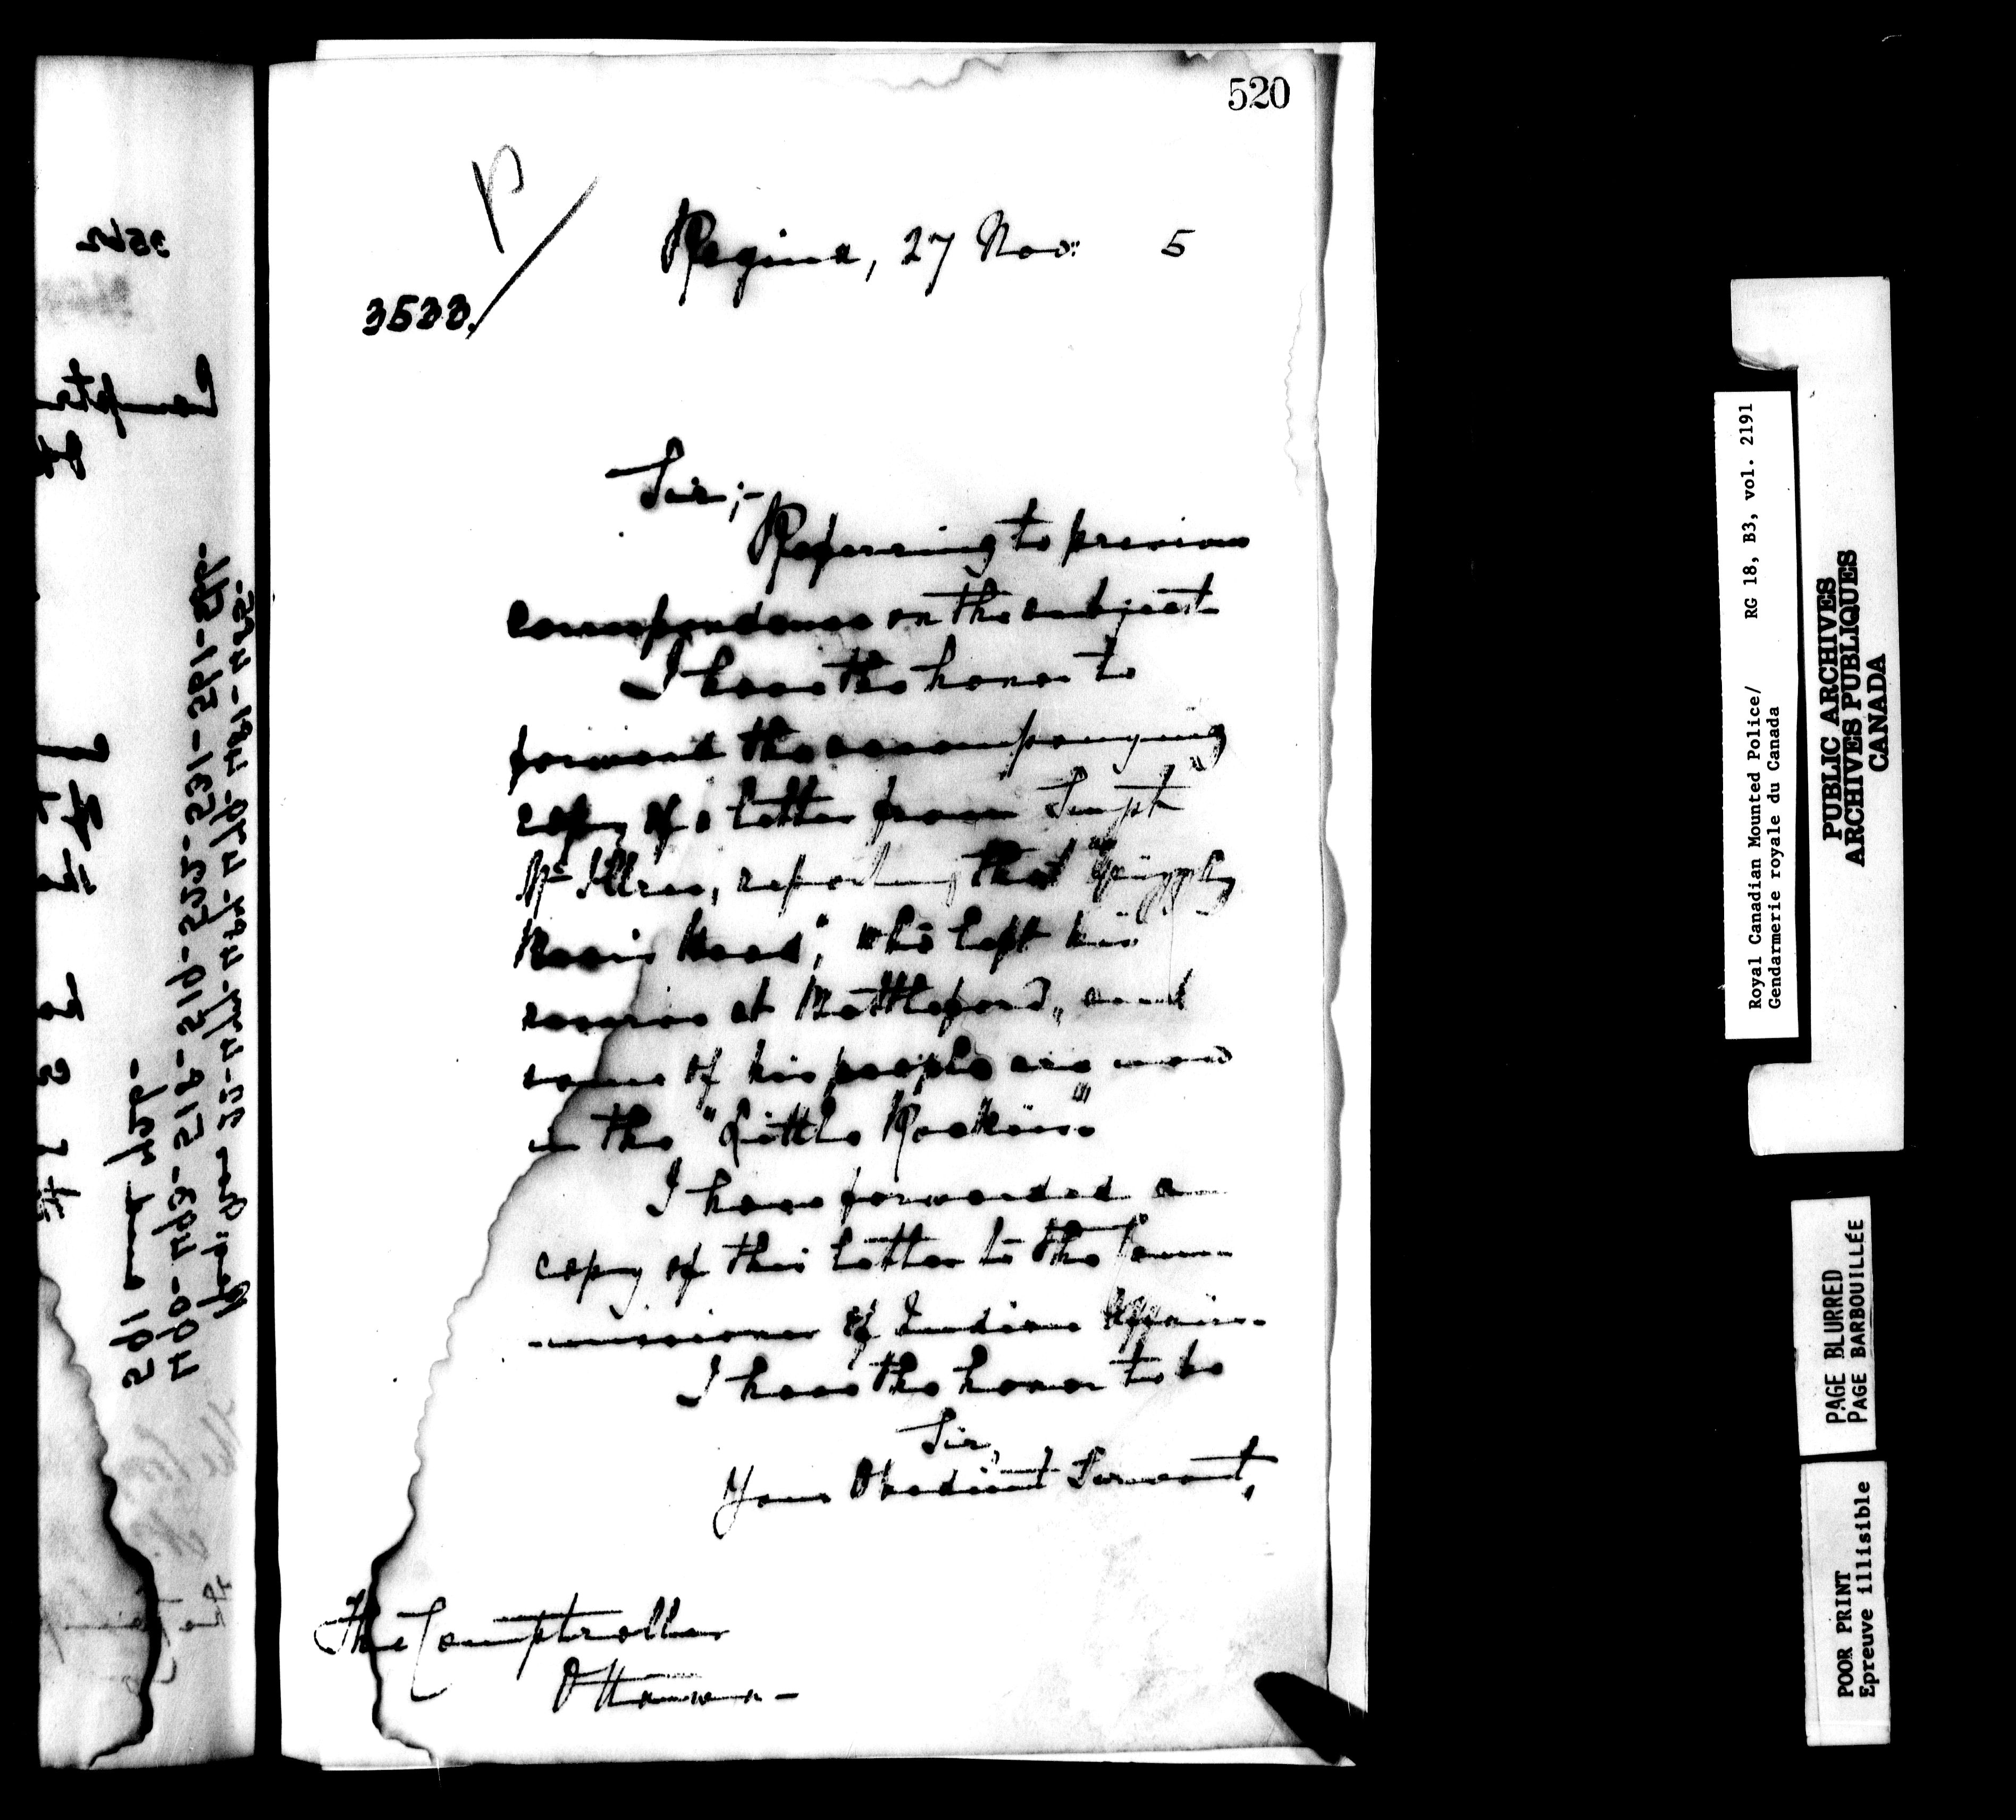 520
P
Regina, 27 Nov: 5
3533.
Sir;-
Referring to previous
correspondence on the subject
I have the honor to
forward the accompanying
copy of a letter from Supt
McIllree, reporting that "Grizzly
Bear's Head", who left his
reserve at Battleford, and
some of his people are now
in the "Little Rockies."
I have forwarded a
copy of this letter to the Com-
-missioner of Indian Affairs.
I have the honor to be
Sir,
Your Obedient Servant,
The Comptroller
Ottawa-
Royal Canadian Mounted Police/ RG 18, B3, vol. 2191
Gendarmerie royale du Canada
PUBLIC ARCHIVES
ARCHIVES PUBLIQUES
CANADA
PAGE BLURRED
PAGE BARBOUILLÉE
POOR PRINT
Epreuve illisible